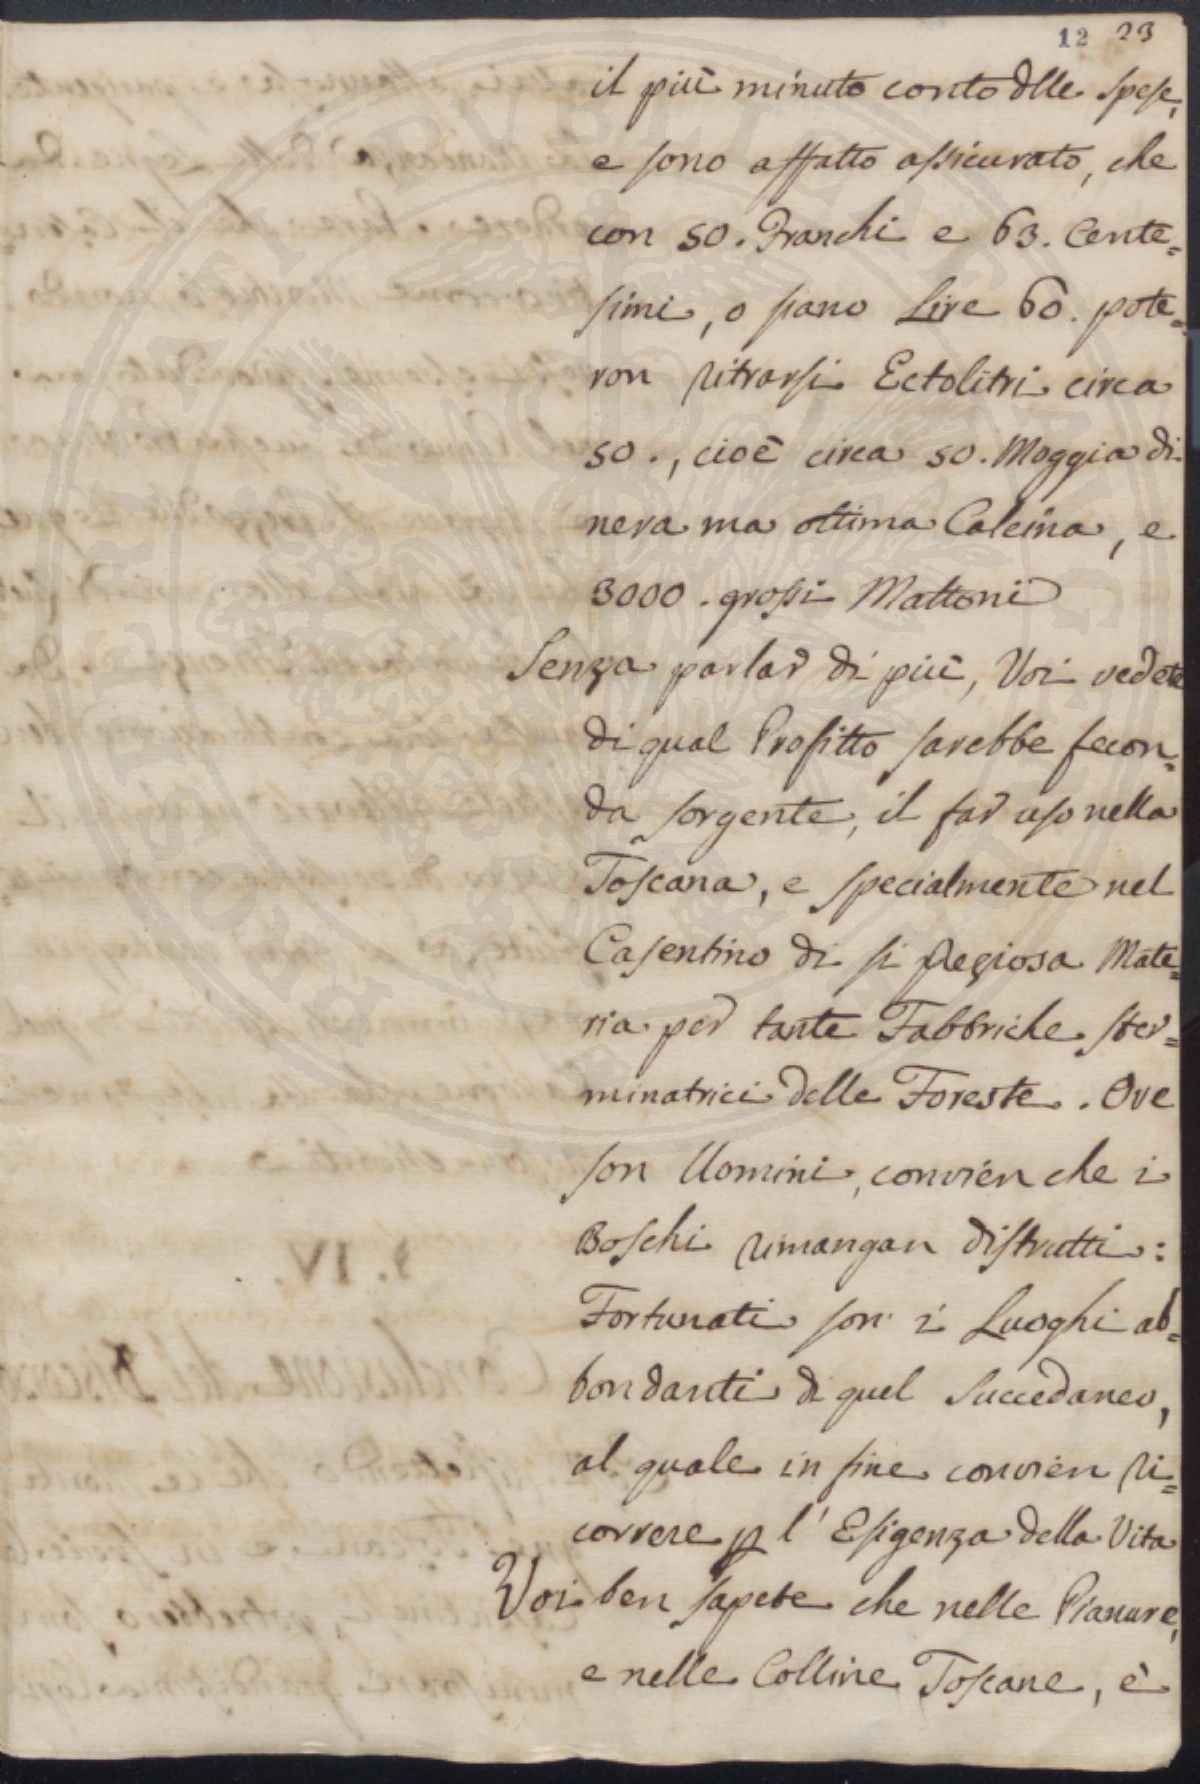 12 23
il più minuto conto dlle Spese,
e sono affatto assicurato, che
con 50. Franchi e 63. Cente=
simi, o siano Lire 60. pote=
ron ritrarsi Ectolitri circa
50., cioè circa 50. Moggia di
nera ma ottima Calcina, e
3000. grossi Mattoni
Senza parlar di più, Voi vedete
di qual Profitto sarebbe fecon=
da sorgente, il far uso nella
Toscana, e specialmente nel
Casentino di si pregiosa Mate=
ria per tante Fabbriche ster=
minatrici delle Foreste. Ove
son Uomini, convien che i
Boschi rimangan distrutti:
Fortunati son i Luoghi ab=
bondanti di quel Succedaneo,
al quale in fine convien ri=
correre p l' Esigenza della Vita
Voi ben sapete che nelle Pianure,
e nelle Colline Toscane, è